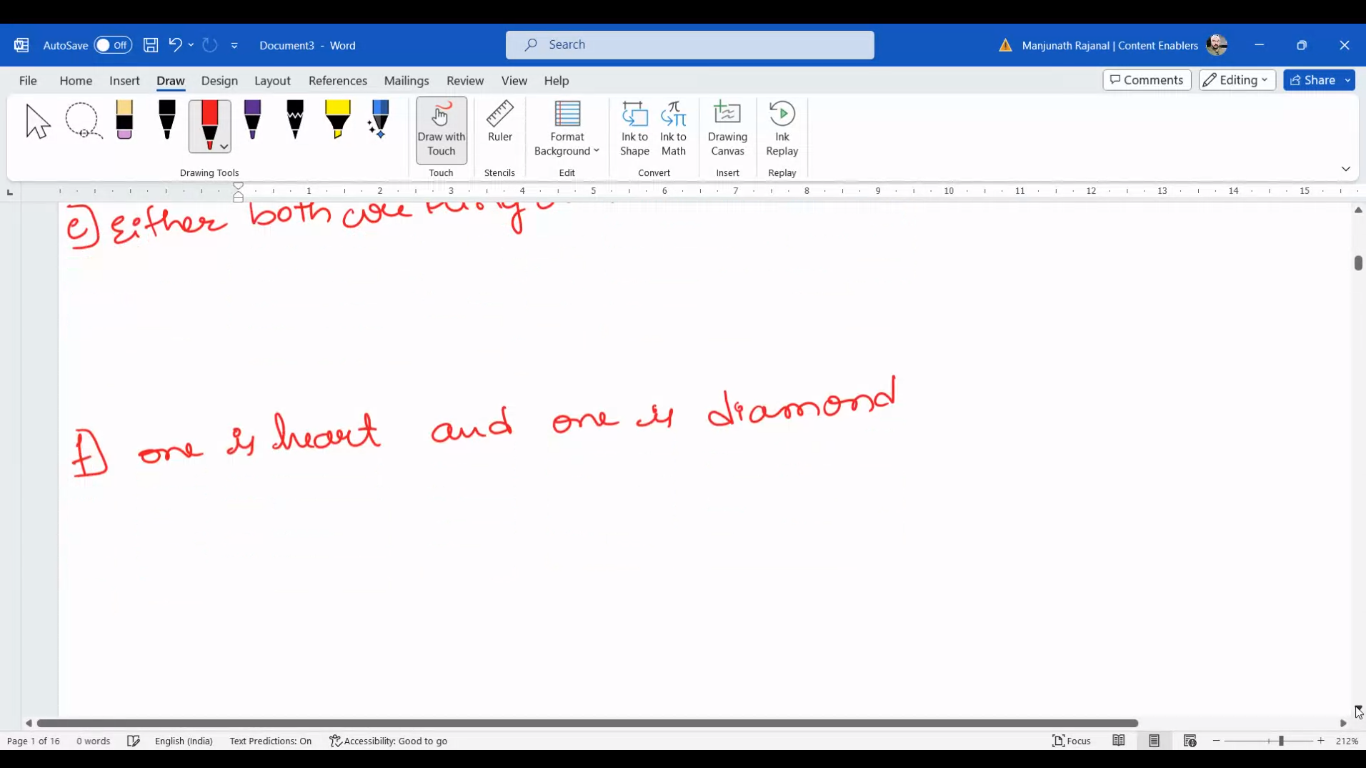 AutoSave Off Document3 - Word Search Manjunath Rajanal | Content Enablers
File Home Insert Draw Design Layout References Mailings Review View Help Comments Editing Share
Draw with Touch Ruler Format Background Ink to Shape Ink to Math Drawing Canvas Ink Replay
Drawing Tools Touch Stencils Edit Convert Insert Replay
1 2 3 4 5 6 7 8 9 10 11 12 13 14 15
e) Either both are
f) one is heart and one is diamond
Page 1 of 16 0 words English (India) Text Predictions: On Accessibility: Good to go Focus 212%